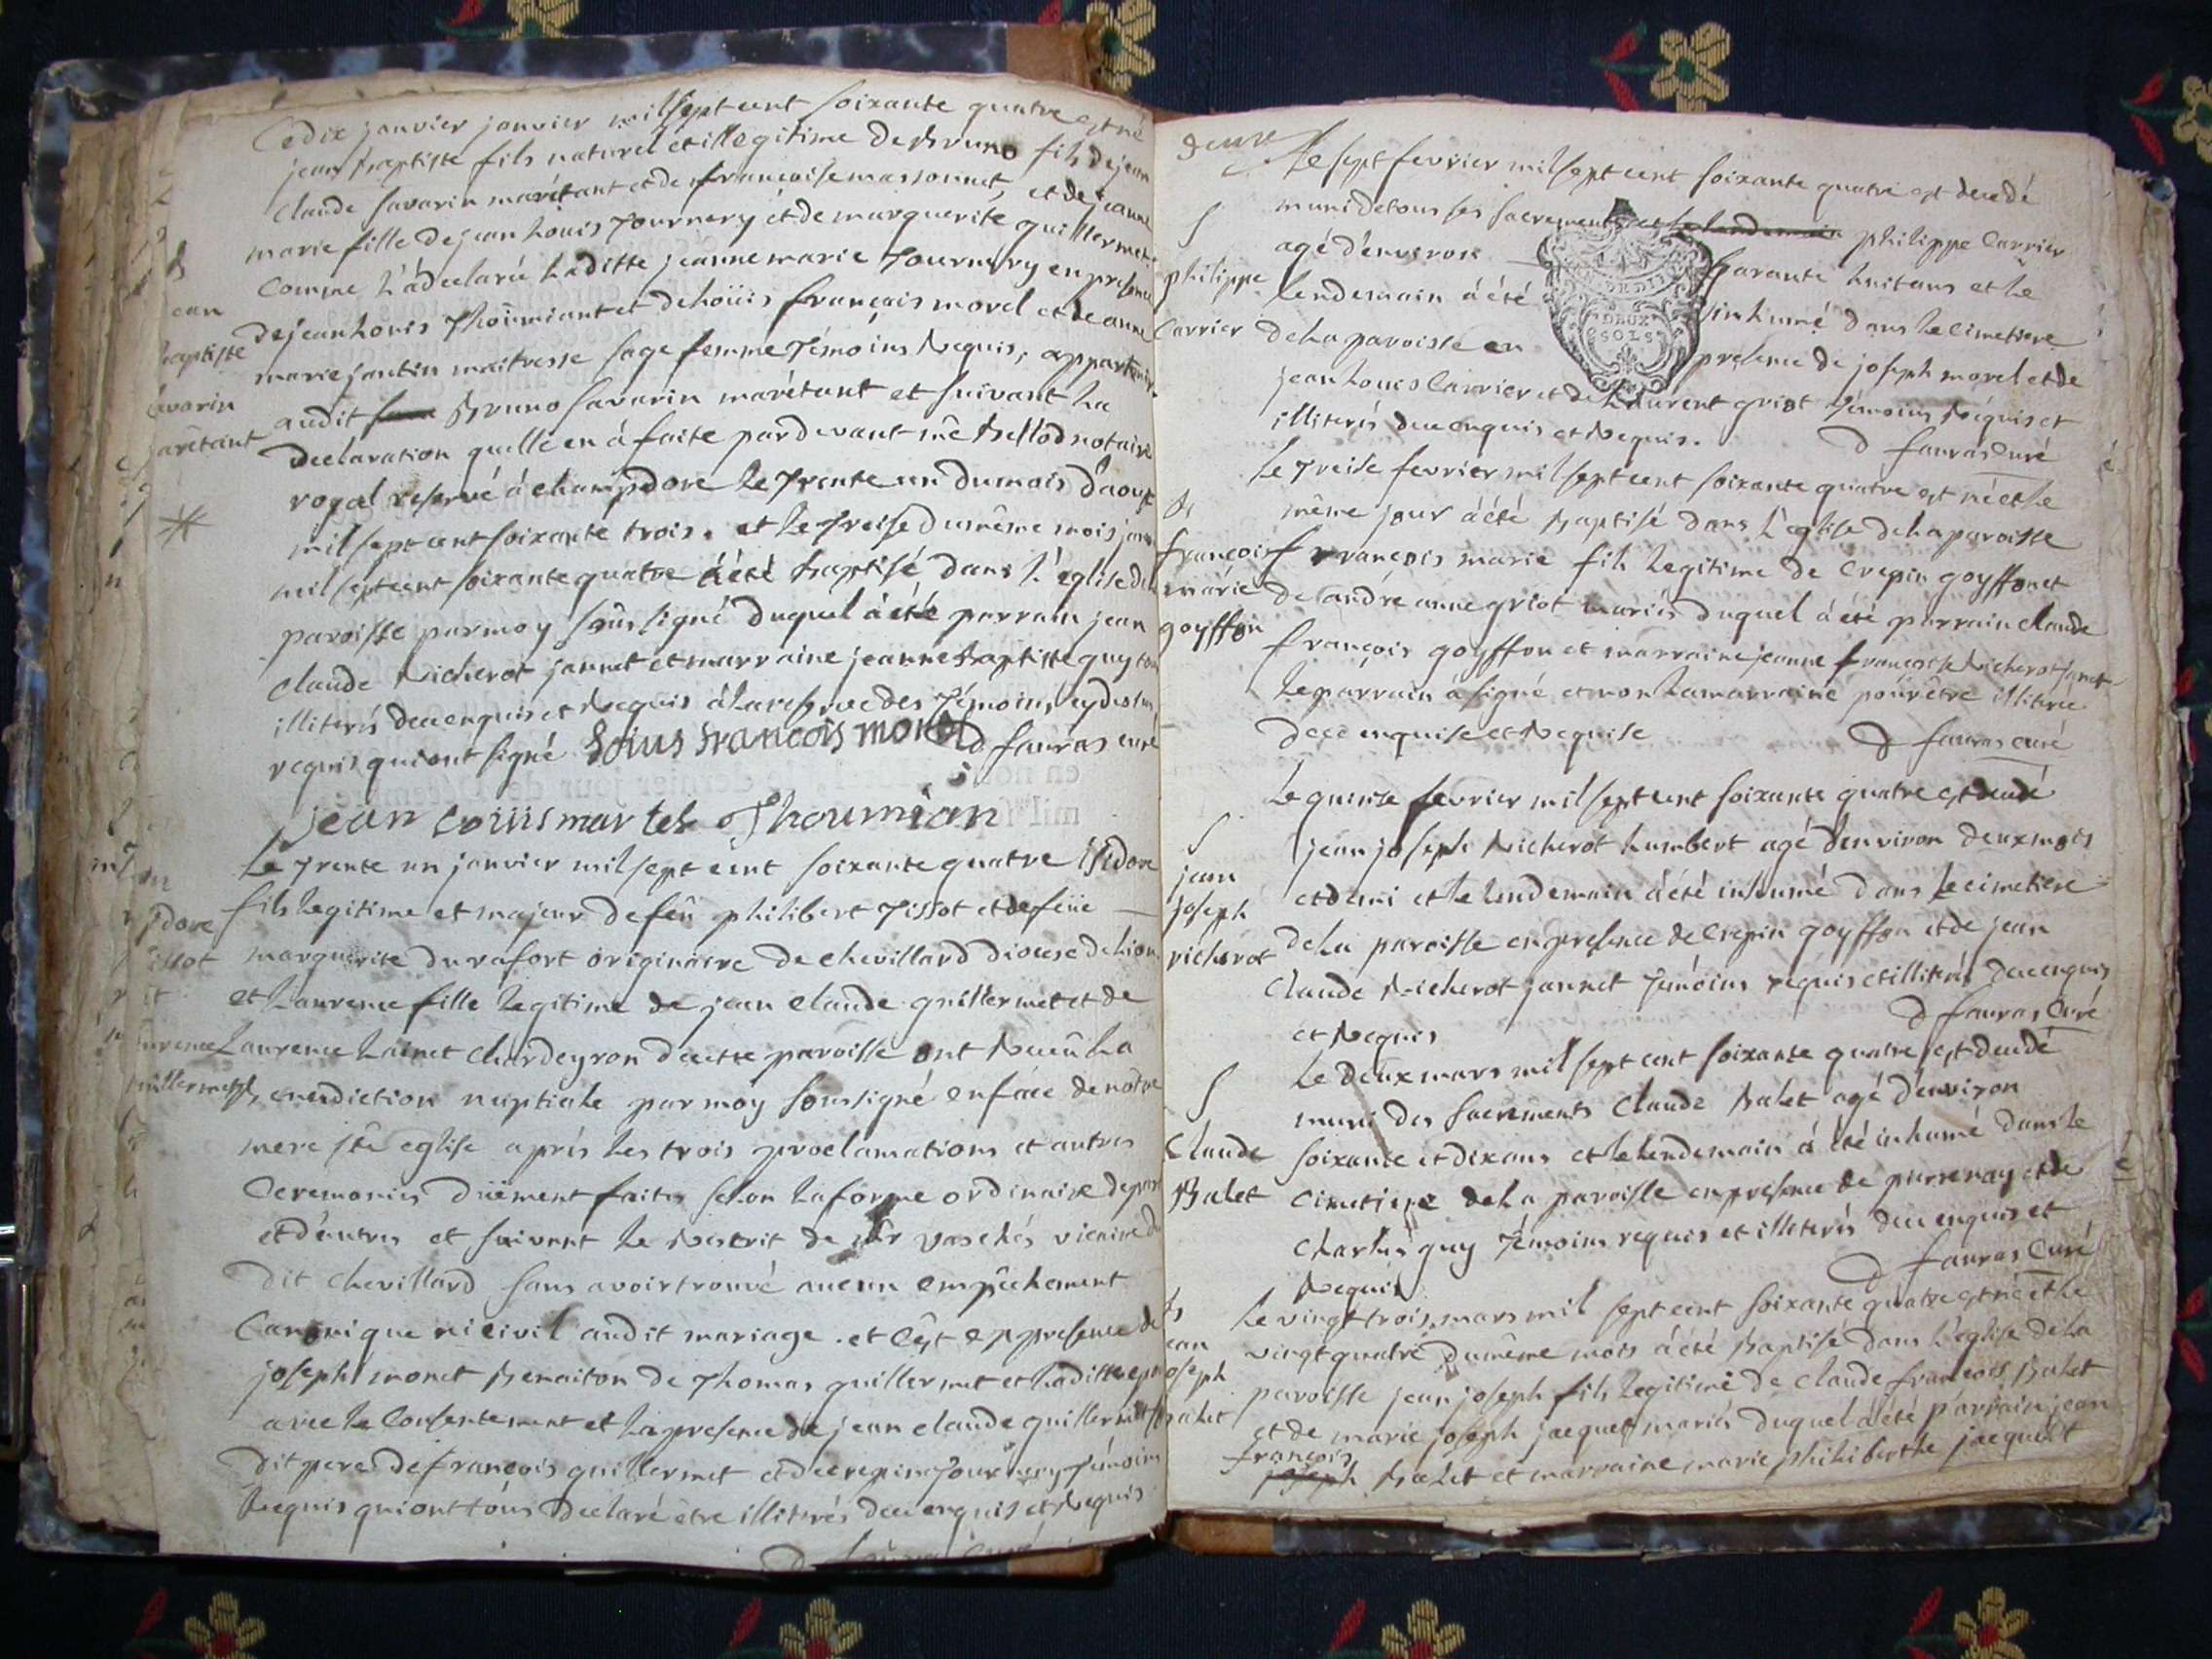 Le dix janvier janvier mil sept cent soixante quatre est né
jean baptiste fils naturel et illegitime de Bruno fils de jean
claude savarin marétant et de francoise massonnet, et de jeanne
marie fille de jean Louis Tournery et de marguerite guillermet
comme l'á declaré laditte jeanne marie Tournery en presence
de jean Louis Thoumiant et de Loüis francois morel et de anne
marie jantin maitresse sage femme Témoins Requis, appartenir
audit Bruno savarin marétant et suivant la
declaration quelle en á faite pardevant me Bellod notaire
royal reservé á champdore le Trente un du mois d'aoust
mil sept cent soixante trois. et le Treise du même mois janv
mil sept cent soixante quatre á été baptisé dans l'eglise de la
paroisse par moy soussigné duquel á été parrain jean
claude Richerot jannet et marraine jeanne Baptiste guy tous
illiterés de ce enquis et Requis á la reserve des Témoins cy dessus
requis qui ont signé Loius francois morel D fauras curé
jean louiis martel Thoumian
jean
baptiste
savarin
marétant
Le Trente un janvier mil sept cent soixante quatre isidore
fils legitime et majeur de feû philibert Tissot et de feüe
marguerite durafort originaire de chevillard diocese de Lion
et Laurence fille legitime de jean claude guillermet et de
Laurence Lainet chardeyron de cette paroisse ont Receu la
Benediction nuptiale par moy soussigné en face de notre
mere ste eglise aprés les trois proclamations et autres
Ceremonies düement faites selon la forme ordinaire de part
et d'autres et suivant le Rescrit de mr vaschés vicaire du
dit chevillard sans avoir trouvé aucun empêchement
Canonique ni civil audit mariage. et c'est en presence de
joseph monet Benaiton de Thomas guillermet et laditte
avec le Consentement et la presence de jean claude guillermet
dit pere de françois guillermet et de crepin Tournery Témoins
Requis qui ont tous declaré être illiterés de ce enquis et Requis
D fauras Curé
isidore
Tissot
et
Laurence
guillermet
deux
Le sept fevrier mil sept cent soixante quatre est decedé
muni de tous ses sacrements et le lendemain philippe Carrier
agé d'environ quarante huit ans et le
lendemain á été inhumé dans le cimetiere
de la paroisse en presence de joseph morel et de
jean Louis Carrier et de Laurent griot Témoins Réquis et
illiterés de ce enquis et Requis. D fauras Curé
DEUX
SOLS
S
philippe
Carrier
Le Treise fevrier mil sept cent soixante quatre est né et le
même jour á été Baptisé dans l'eglise de la paroisse
François marie fils legitime de Crepin goyffon et
de andré anne griot mariés duquel á été parrain claude
françois goyffon et marraine jeanne francoise Richerot janet
le parrain á signé et non la marraine pour être illiterée
de ce enquise et Requise D fauras curé
B
françois
marie
goyffon
Le quinse fevrier mil sept cent soixante quatre est decedé
jean joseph Richerot humbert agé d'environ deux mois
et demi et le lendemain á été inhumé dans le cimetiere
de la paroisse en presence de Crepin goyffon et de jean
claude Richerot jannet Témoins requis et illiterés de ce enquis
et Requis D fauras Curé
S
jean
joseph
richerot
Le deux mars mil sept cent soixante quatre est decedé
muni des sacrements Claude Balet agé d'environ
soixante et dix ans et le lendemain á été inhumé dans le
cimetiere de la paroisse en presence de et de
Charles guy Témoins requis et illeterés de ce enquis et
Requis D fauras Curé
S
Claude
Balet
Le vingt trois mars mil sept cent soixante quatre est né et le
vingt quatre du même mois á été Baptisé dans l'eglise de la
paroisse jean joseph fils legitime de claude françois Balet
et de marie joseph jacquet mariés duquel á été parrain jean
françois
joseph Balet et marraine marie philiberthe jacquet
B
jean
joseph
balet